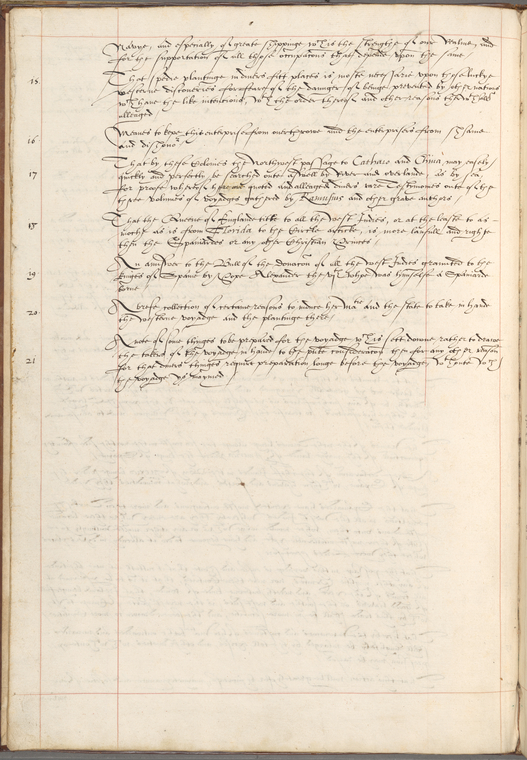 Navye, and especially of greate shippinge wch is the strengthe of our Realme, and
for the supportation of all those occupacons that depende upon the same
15. That spedie plantinge in divers fitt places is moste necessarie upon these luckye
westerne discoveries for feare of the daunger of beinge prevented by other nations
wch have the like intentions, wth the order thereof and other reasons therewthall
alleaged
16 Meanes to kepe this enterprise from overthrowe and the enterprisers from shame
and dishonor
17 That by these Colonies the Northwest passage to Cathaio and China may easely
quickly and perfectly be searched oute aswell by river and overlande, as by sea,
for proofe whereof here are quoted and alleaged divers rare Testymonies oute of the
three volumes of voyadges gathered by Ramusius and other grave authors
18 That the Queene of Englande title to all the west Indies, or at the leaste to as
moche as is from Florida to the Circle articke, is more lawfull and righte
then the Spaniardes or any other Christian Princes
19 An aunswer to the Bull of the donacon of all the west Indies graunted to the
kinges of Spaine by Pope Alexander the VIth whoe was himselfe a Spaniarde
borne
20. A brefe collection of certaine reasons to induce her Matie and the state to take in hande
the westerne voyadge and the plantinge there
21 A note of some thinges to be prepared for the voyadge wch is sett downe rather to drawe
the takers of the voyadge in hande to the pnte consideracon then for any other reason
for that divers thinges require preparation longe before the voyadge, wthoute wch
the voyadge ys maymed